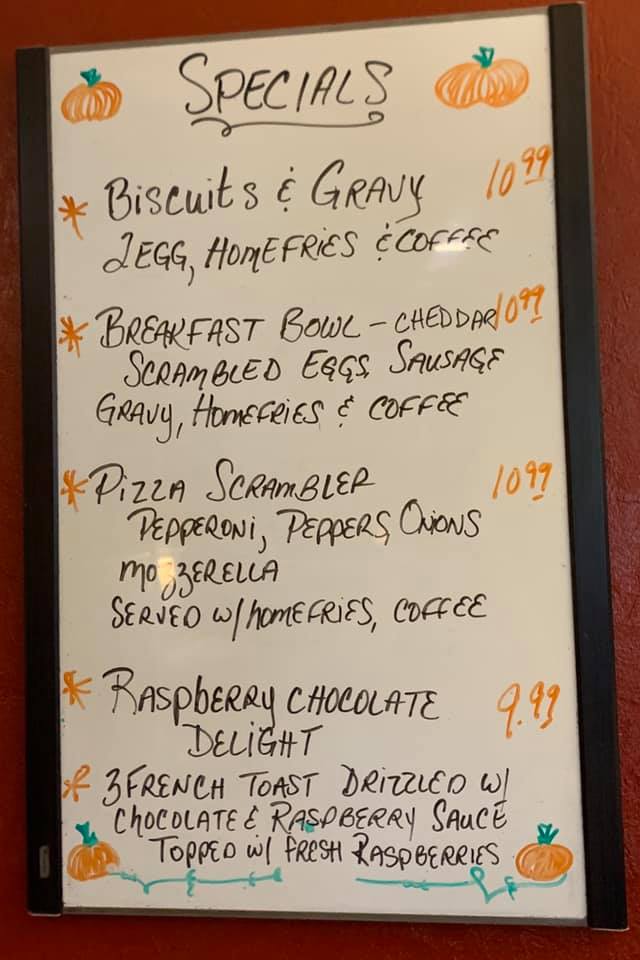 SPECIALS
* Biscuits & GRAVY 10.99
2 EGG, HOMEFRIES & COFFEE
* BREAKFAST BOWL - CHEDDAR 10.99
SCRAMBLED EGGS, SAUSAGE
GRAVY, HOMEFRIES & COFFEE
* PIZZA SCRAMBLER 10.99
PEPPERONI, PEPPERS, ONIONS
MOZZERELLA
SERVED W/HOMEFRIES, COFFEE
* RASPBERRY CHOCOLATE 9.99
DELIGHT
* 3 FRENCH TOAST DRIZZLED W/
CHOCOLATE & RASPBERRY SAUCE
TOPPED W/ FRESH RASPBERRIES